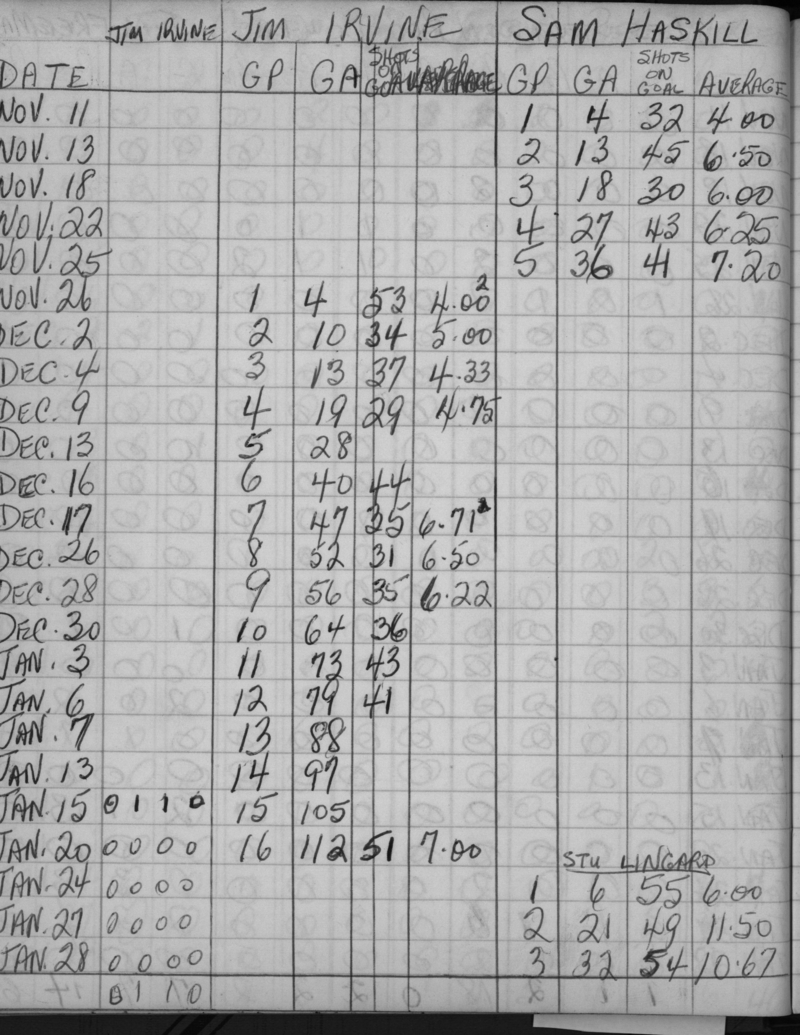 JIM IRVINE JIM IRVINE SAM HASKILL
DATE GP GA SHOTS ON GOAL AVERAGE GP GA SHOTS ON GOAL AVERAGE
NOV. 11 1 4 32 4.00
NOV. 13 2 13 45 6.50
NOV. 18 3 18 30 6.00
NOV. 22 4 27 43 6.25
NOV. 25 5 36 41 7.20
NOV. 26 1 4 53 4.00 2
DEC. 2 2 10 34 5.00
DEC. 4 3 13 37 4.33
DEC. 9 4 19 29 4.75
DEC. 13 5 28
DEC. 16 6 40 44
DEC. 17 7 47 35 6.71
DEC. 26 8 52 31 6.50
DEC. 28 9 56 35 6.22
DEC. 30 10 64 36
JAN. 3 11 73 43
JAN. 6 12 79 41
JAN. 7 13 88
JAN. 13 14 97
JAN. 15 0 1 1 0 15 105
JAN. 20 0 0 0 0 16 112 51 7.00 STU LINGARD
JAN. 24 0 0 0 0 1 6 55 6.00
JAN. 27 0 0 0 0 2 21 49 11.50
JAN. 28 0 0 0 0 3 32 54 10.67
0 1 1 0